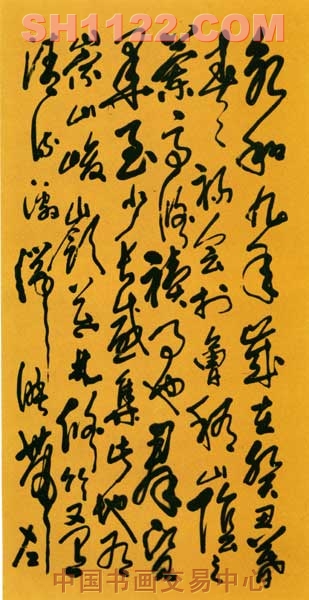 SH1122.COM
永和九年歲在癸丑暮
春之初會於會稽山陰之
蘭亭修禊事也群賢
畢至少長咸集此地有
崇山峻嶺茂林修竹又有
清流激湍映帶左
中国书画交易中心